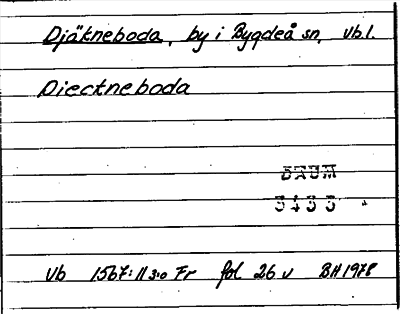 Djäkneboda, by i Bygdeå sn, Vb l.
Diectneboda
DAUM
3433
Vb 1567:11 3:o Fr fol 26 v BH 1978